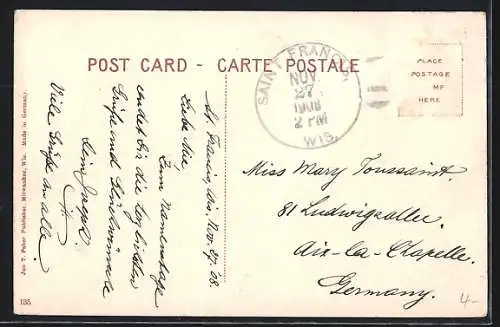 POST CARD - CARTE POSTALE
SAINT FRANCIS,
NOV.
27
1908
2 PM
WIS.
PLACE
POSTAGE
HERE
St. Francis, Wis. Nov. 27. '08.
Liebe Mie,
Zum Namenstage
sendet dir die herzlichsten
Grüße und Glückwünsche
Dein Joseph.
Viele Grüße an alle.
Miss Mary Toussaint
81 Ludwigsallee.
Aix-la-Chapelle.
Germany.
Publisher, Milwaukee, Wis. Made in Germany.
135
4-